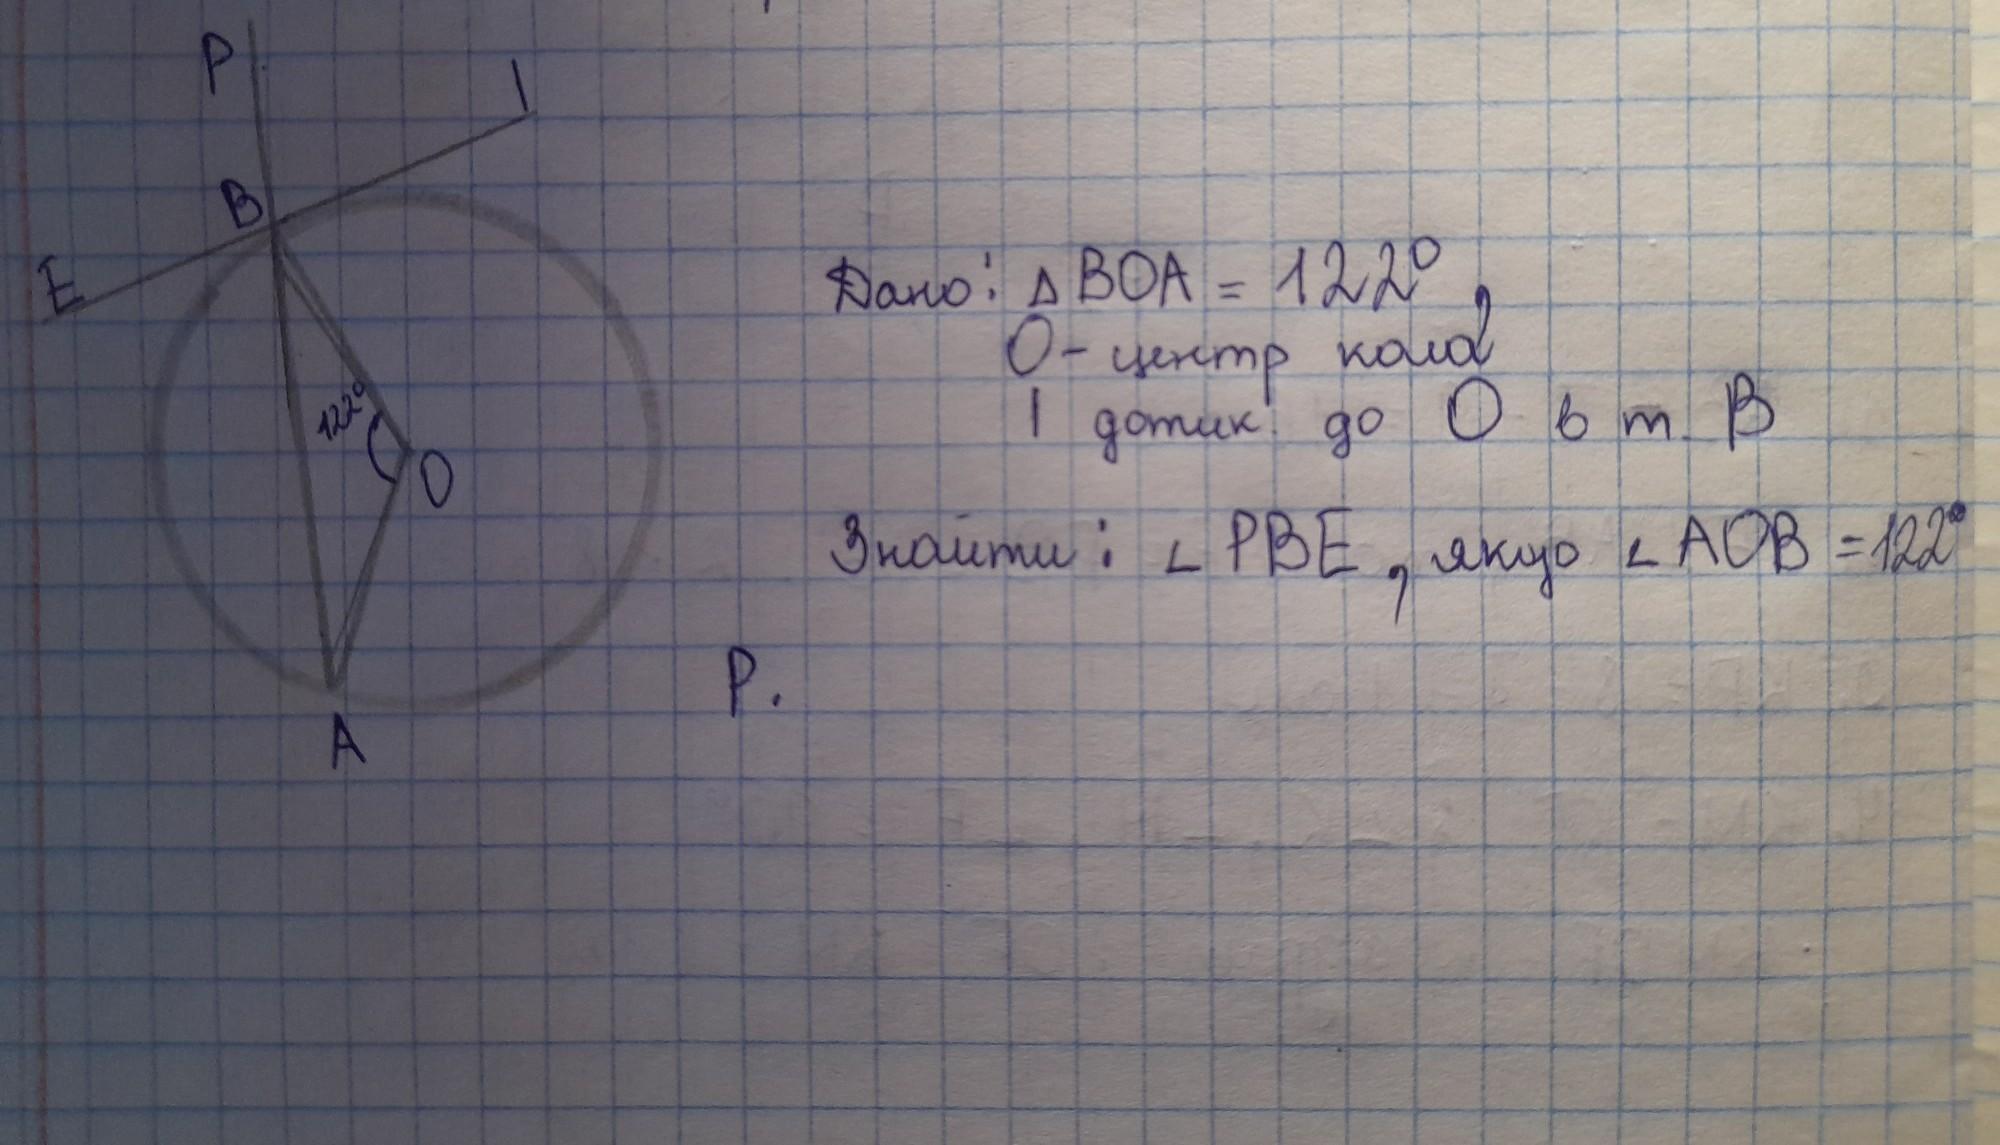 P
l
B
E
122°
O
A
Дано: △BOA = 122°,
O - центр кола
l дотик. до O в т. B
Знайти: ∠PBE, якщо ∠AOB = 122°
Р.